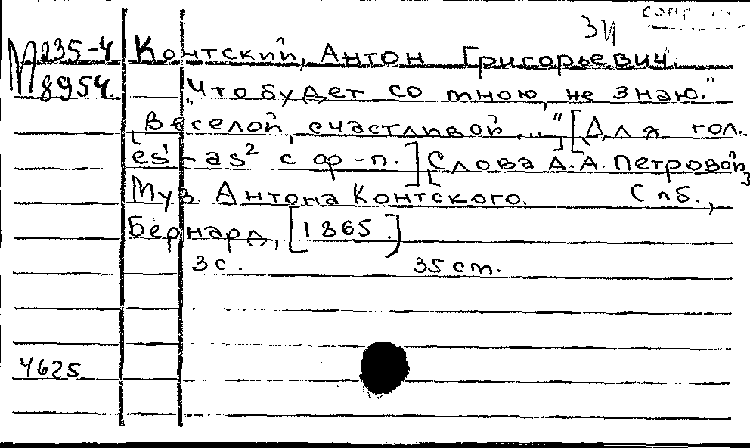 ЗИ
М 235-4 Контский, Антон Григорьевич.
8954 "Что будет со мною, не знаю."
[Веселой, счастливой..."] [Для гол.
es¹-as² с ф-п.] [Слова А.А. Петровой,
Муз. Антона Контского. Спб.,
Бернард, [1865.]
3 с. 35 см.
4625